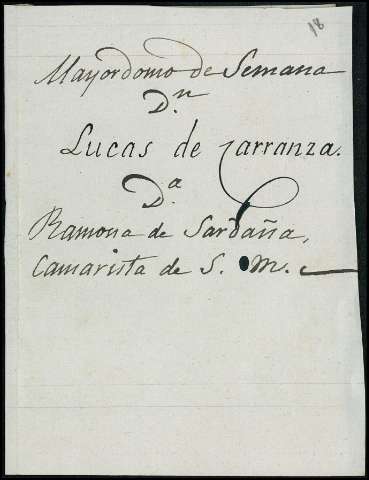 18
Mayordomo de Semana
Dn
Lucas de Carranza.
Da
Ramona de Sardaña,
Camarista de S. M.